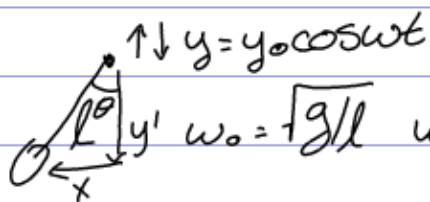 ↑↓ y = y₀cosωt
θ
l y' ω₀ = √g/l
x